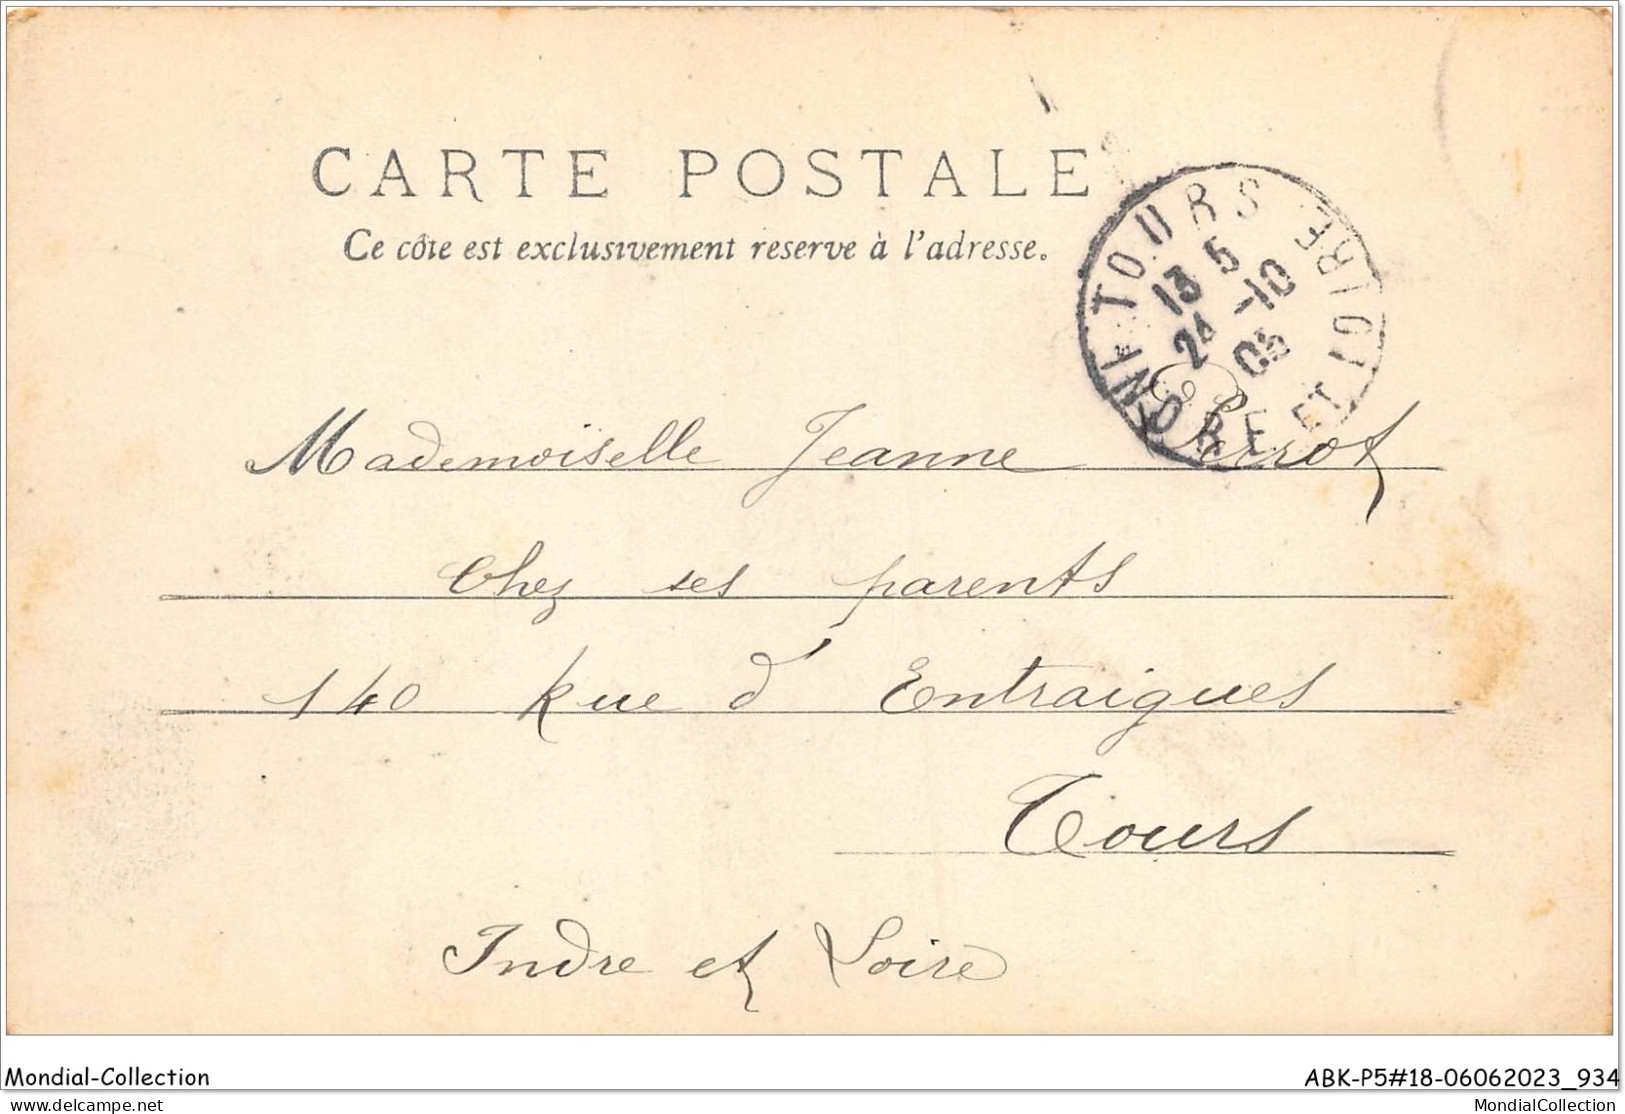 CARTE POSTALE
Ce côte est exclusivement reserve à l'adresse.
TOURS
INDRE ET LOIRE
13 5
24 -10
05
Mademoiselle Jeanne Perrot
Chez ses parents
140 Rue d'Entraigues
Tours
Indre et Loire
Mondial-Collection
ABK-P5#18-06062023_934
delcampe.net
MondialCollection